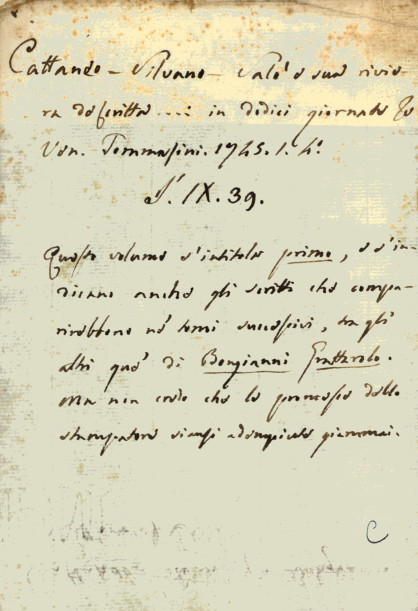 Cattaneo – Silvano – Salò e sua rivie-
ra descritta .... in dodici giornate
Ven. Tommasini. 1745. 1. 4.º
S. IX. 39.
Questo volume s'intitola primo, e s'in-
dicano anche gli scritti che compa-
rirebbono ne' tomi successivi, tra gli
altri que' di Bongianni Grattarolo.
Ma non credo che le promesse dello
stampatore siansi adempiute giammai.
C